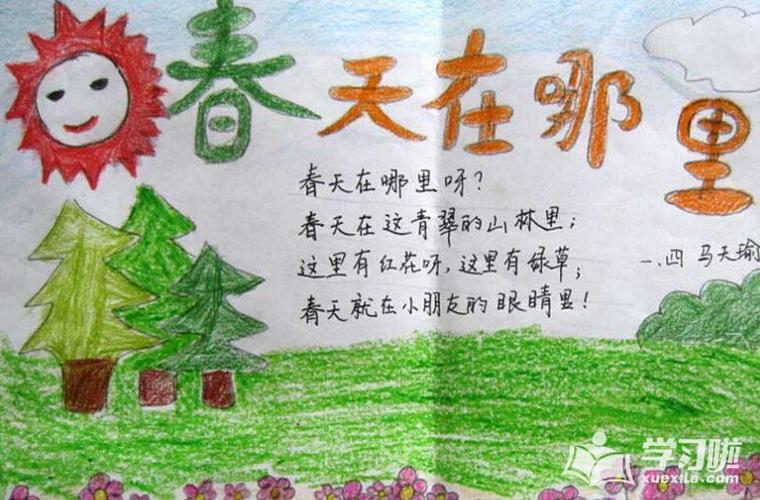 春天在哪里
春天在哪里呀？
春天在这青翠的山林里；
这里有红花呀，这里有绿草；
春天就在小朋友的眼睛里！
一、四 马天瑜
学习啦
xuexila.com